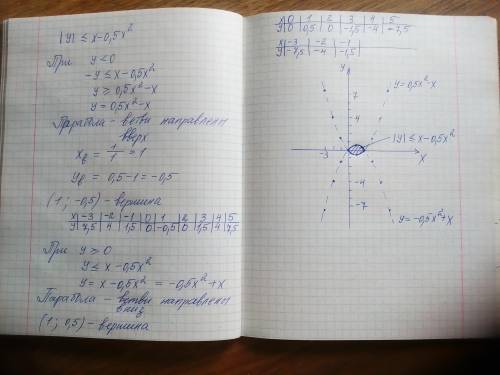 |y| ≤ x-0,5x²
При y<0
-y ≤ x-0,5x²
y ≥ 0,5x²-x
y = 0,5x²-x
Парабола - ветви направлены
вверх
xв = 1/1 = 1
yв = 0,5-1 = -0,5
(1; -0,5) - вершина
x|-3|-2|-1|0|1|2|3|4|5
y|7,5|4|1,5|0|-0,5|0|1,5|4|7,5
При y ≥ 0
y ≤ x-0,5x²
y = x-0,5x² = -0,5x²+x
Парабола - ветви направлены
вниз
(1; 0,5) - вершина
x|0|1|2|3|4|5
y|0|0,5|0|-1,5|-4|-7,5
x|-3|-2|-1
y|-7,5|-4|-1,5
y
y=0,5x²-x
7
4
|y| ≤ x-0,5x²
-3
x
-4
-7
y=-0,5x²+x